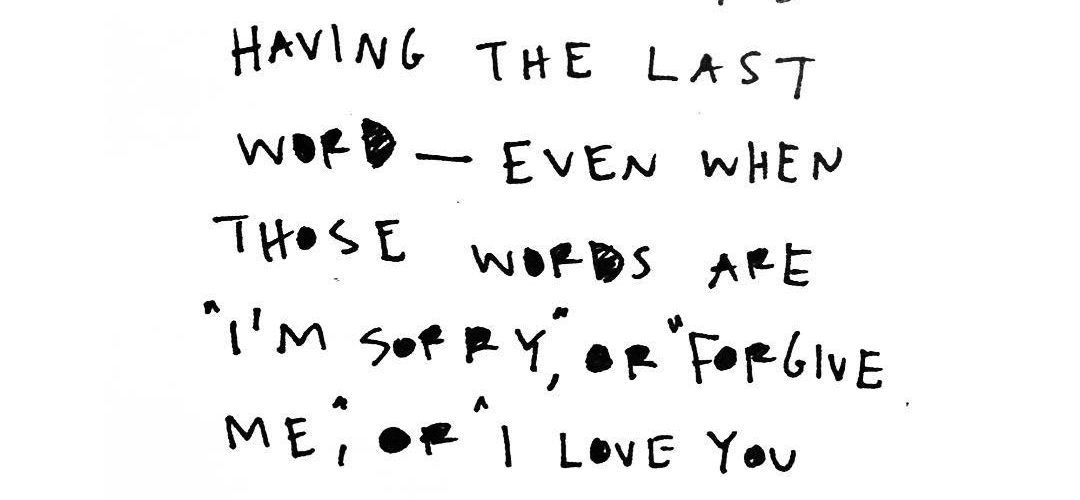 HAVING THE LAST
WORD — EVEN WHEN
THOSE WORDS ARE
"I'M SORRY", OR "FORGIVE
ME", OR "I LOVE YOU